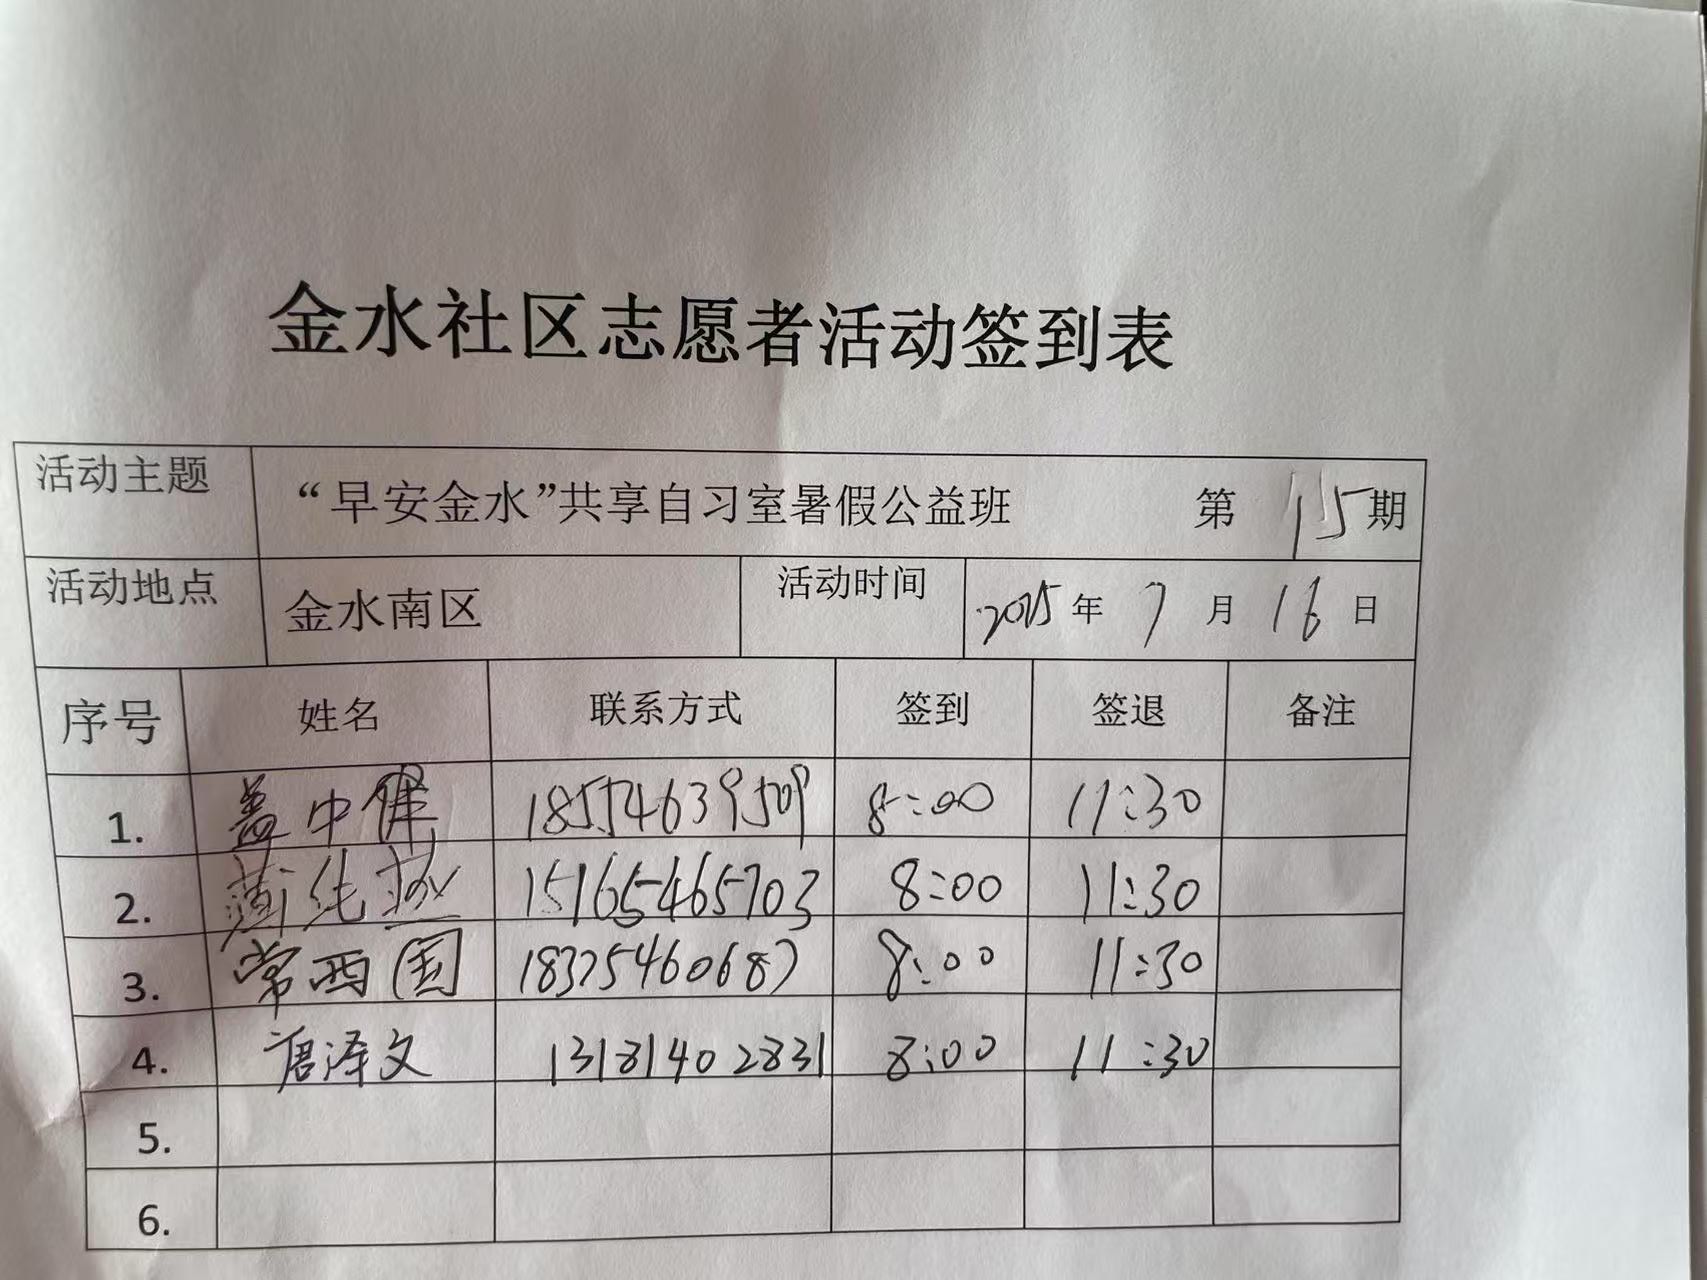 金水社区志愿者活动签到表
活动主题 “早安金水”共享自习室暑假公益班 第 15 期
活动地点 金水南区 活动时间 2025 年 7 月 16 日
序号 姓名 联系方式 签到 签退 备注
1. 盖中健 18554639509 8:00 11:30
2. 15165465703 8:00 11:30
3. 常西国 18325460687 8:00 11:30
4. 唐泽文 13181402831 8:00 11:30
5.
6.